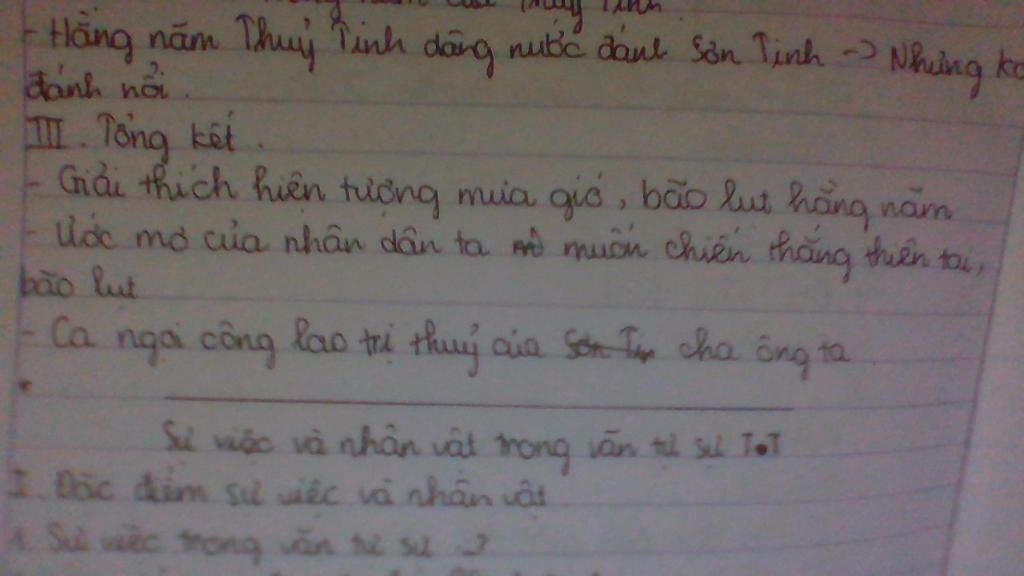 - Hằng năm Thuỷ Tinh dâng nước đánh Sơn Tinh -> Nhưng ko
đánh nổi.
III. Tổng kết.
- Giải thích hiện tượng mưa gió, bão lụt hằng năm
- Ước mơ của nhân dân ta muốn chiến thắng thiên tai,
bão lụt
- Ca ngợi công lao trị thuỷ của cha ông ta.
Sự việc và nhân vật trong văn tự sự T.T
I. Đặc điểm sự việc và nhân vật
1. Sự việc trong văn tự sự